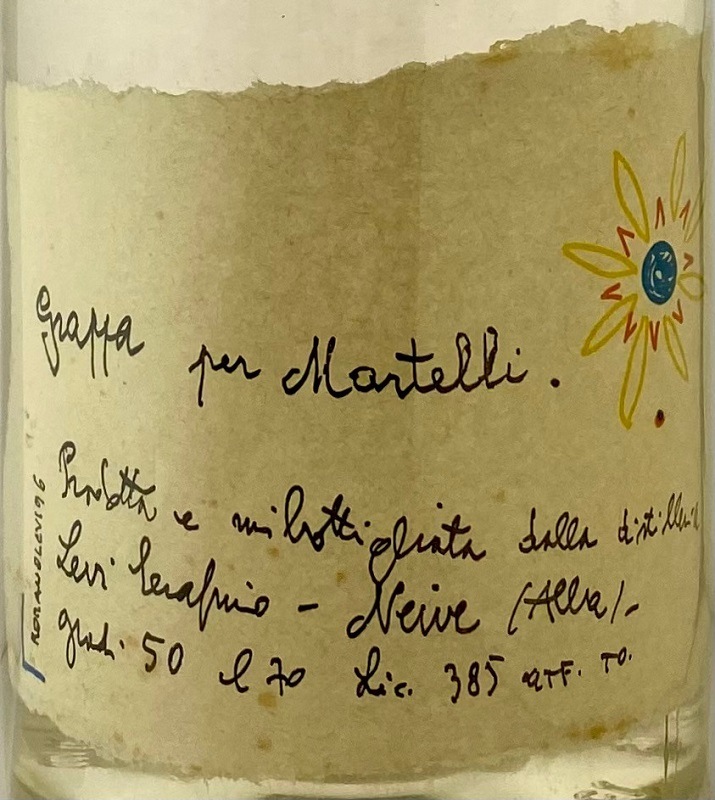 Grappa per Martelli.
Prodotta e imbottigliata dalla distilleria
Levi Serafino - Neive (Alba)-
gradi 50 l 70 Lic. 385 UTF. TO.
ROMANO LEVI 96